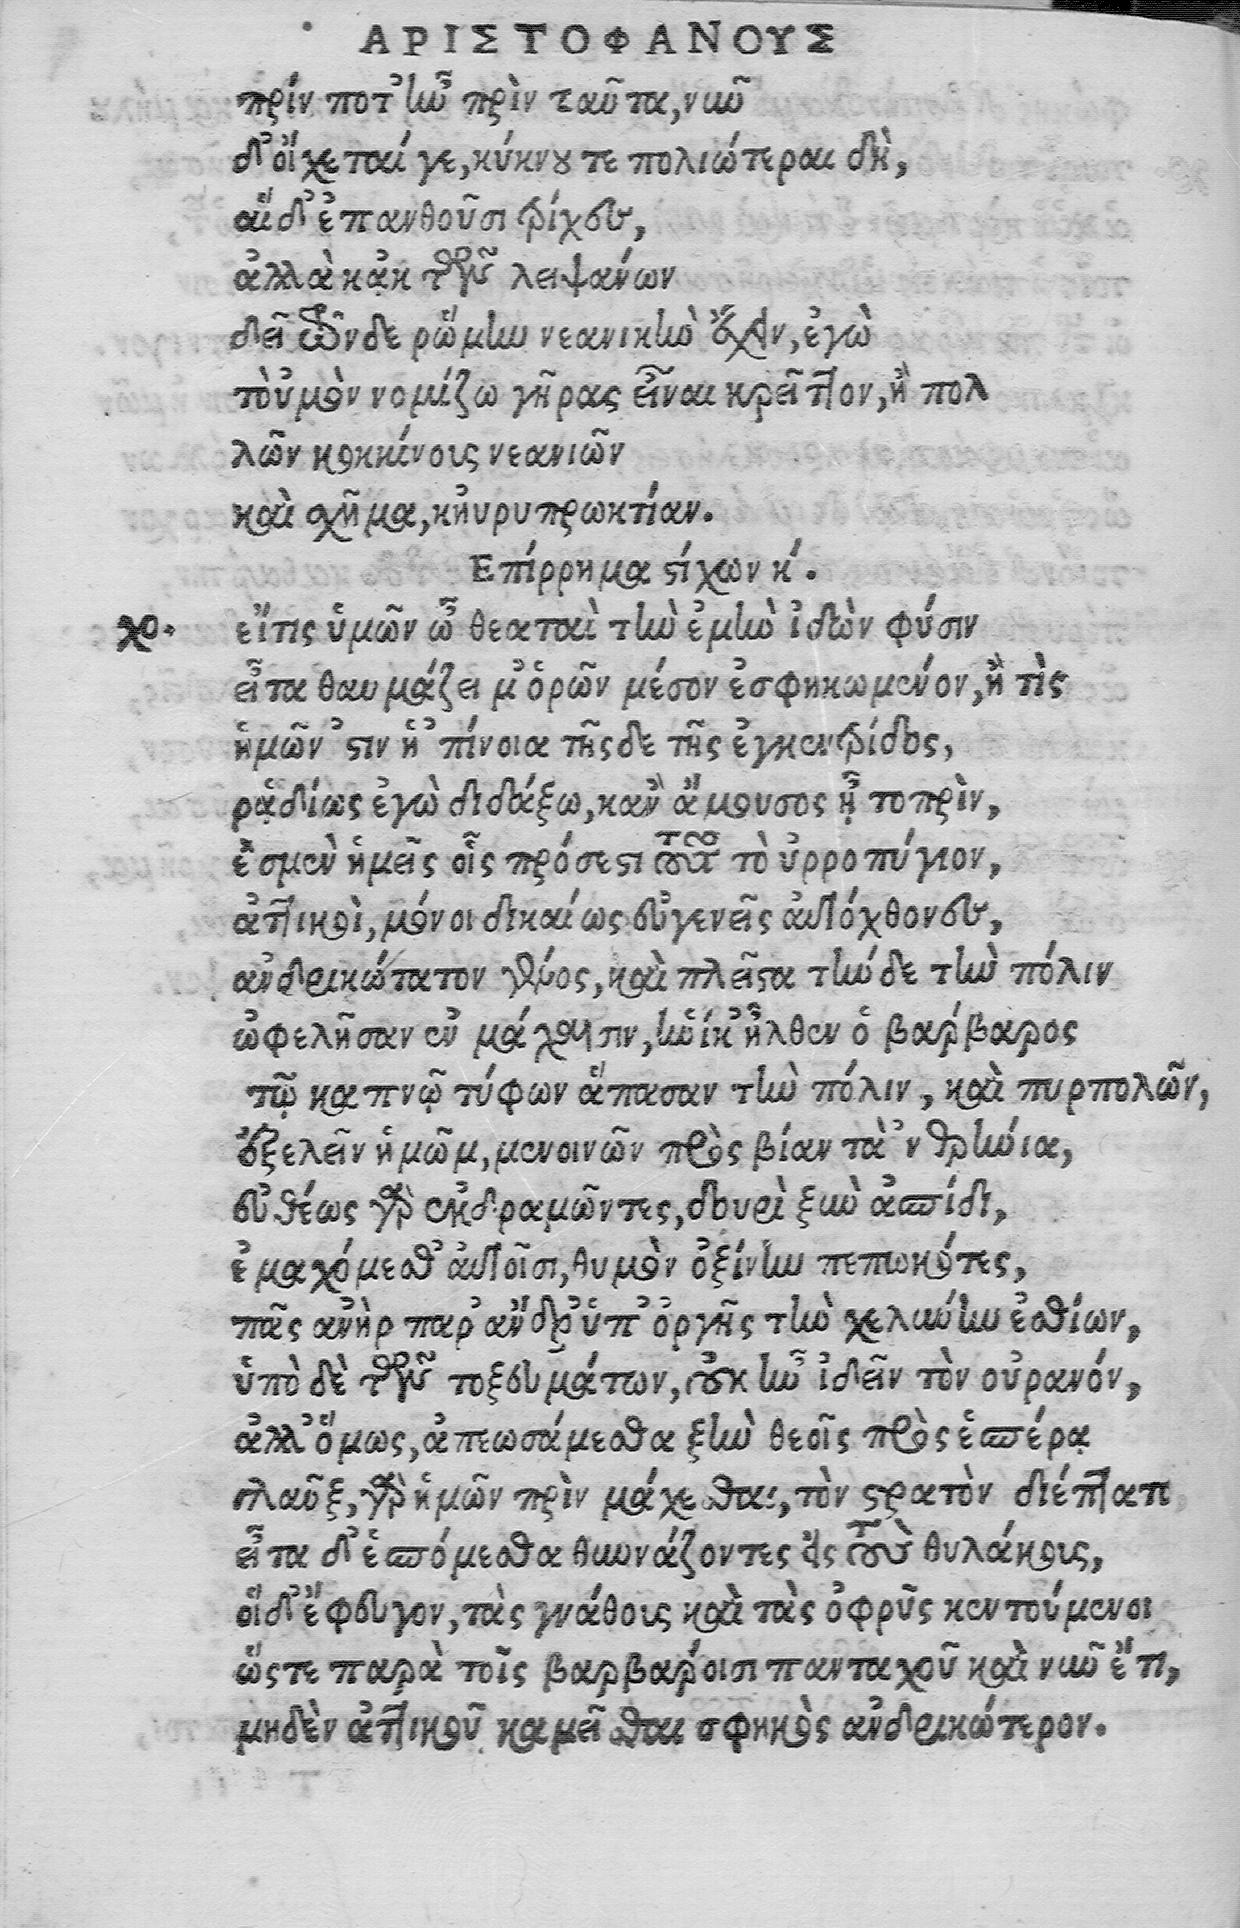 ΑΡΙΣΤΟΦΑΝΟΥΣ
πρίν ποτ' ἦν πρὶν ταῦτα, νῦν
δ' οἴχεταί γε, κύκνου τε πολιώτεραι δὴ,
αἵδ' ἐπανθοῦσι τρίχες,
ἀλλὰ κᾀκ τῶν λειψάνων
δεῖ τῶνδε ῥώμην νεανικὴν ἔχειν, ἐγὼ
τοὐμὸν νομίζω γῆρας εἶναι κρεῖττον, ἢ πολ
λῶν κικίννους νεανιῶν
καὶ σχῆμα, κηὐρυπρωκτίαν.
Επίρρημα στίχων κ΄.
χο. εἴτις ὑμῶν ὦ θεαταὶ τὴν ἐμὴν ἰδὼν φύσιν
εἶτα θαυμάζει μ' ὁρῶν μέσον ἐσφηκωμένον, ἢ τὶς
ἡμῶν 'στιν ἡ 'πίνοια τῆς δε τῆς ἐγκεντρίδος,
ρᾳδίως ἐγὼ διδάξω, κἂν ἄμουσος ᾖ τοπρὶν,
ἐσμὲν ἡμεῖς οἷς πρόσεστι τοῦτο τὸ ὑρροπύγιον,
ἀττικοὶ, μόνοι δικαίως εὐγενεῖς αὐτόχθονες,
ἀνδρικώτατον γένος, καὶ πλεῖστα τήνδε τὴν πόλιν
ὠφελῆσαν ἐν μάχαισιν, ἡνίκ' ἦλθεν ὁ βαρβαρος
τῷ καπνῷ τύφων ἅπασαν τὴν πόλιν, καὶ πυρπολῶν,
ἐξελεῖν ἡμῶμ, μενοινῶν πρὸς βίαν τὰ 'νθρήνια,
εὐθέως γὰρ ἐκδραμῶντες, δουρὶ ξὺν ἀσπίδι,
ἐμαχόμεσθ' αὐτοῖσι, θυμὸν ὀξίνην πεπωκότες,
πᾶς ἀνὴρ παρ' ἄνδρ' ὑπ' ὀργῆς τὴν χελύνην ἐσθίων,
ὑπὸ δὲ τῶν τοξευμάτων, οὐκ ἦν ἰδεῖν τὸν οὐρανόν,
ἀλλ' ὅμως, ἀπεωσάμεσθα ξὺν θεοῖς πρὸς ἑσπέρᾳ
γλαῦξ, γὰρ ἡμῶν πρὶν μάχεσθαι, τὸν στρατὸν διέπτατο
εἶτα δ' ἑσπόμεσθα θυννάζοντες εἰς τοὺς θυλάκους,
οἱ δ' ἔφευγον, τὰς γνάθους καὶ τὰς ὀφρῦς κεντούμενοι
ὥστε παρὰ τοῖς βαρβαροισι πανταχοῦ καὶ νῦν ἔτι,
μηδὲν ἀττικοῦ καλεῖσθαι σφηκὸς ἀνδρικώτερον.